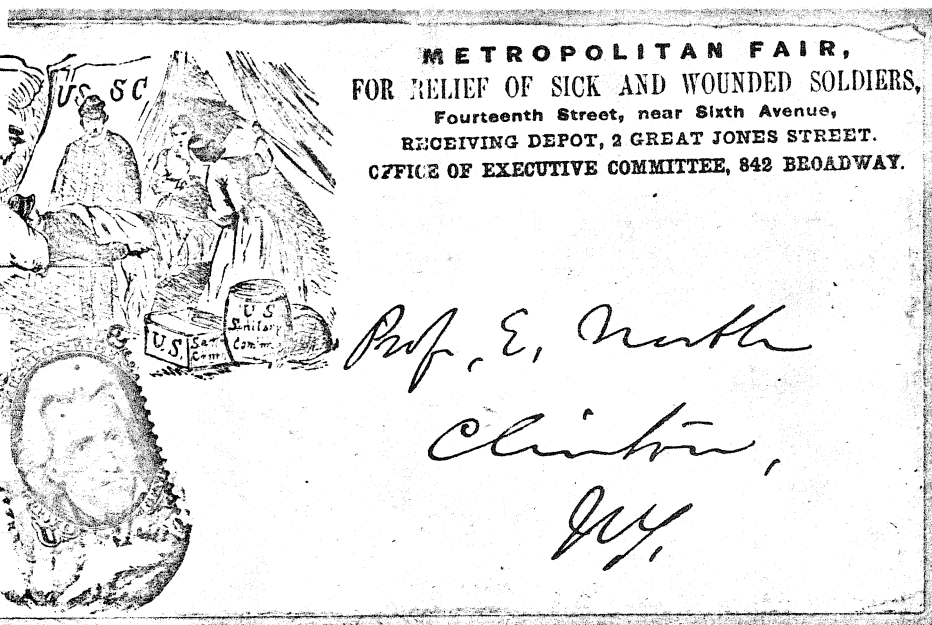 METROPOLITAN FAIR,
FOR RELIEF OF SICK AND WOUNDED SOLDIERS,
Fourteenth Street, near Sixth Avenue,
RECEIVING DEPOT, 2 GREAT JONES STREET.
OFFICE OF EXECUTIVE COMMITTEE, 842 BROADWAY.
US SC
U S
Sanitary
Comm.
U.S. San
Com.
Prof. E. North
Clinton,
NY.